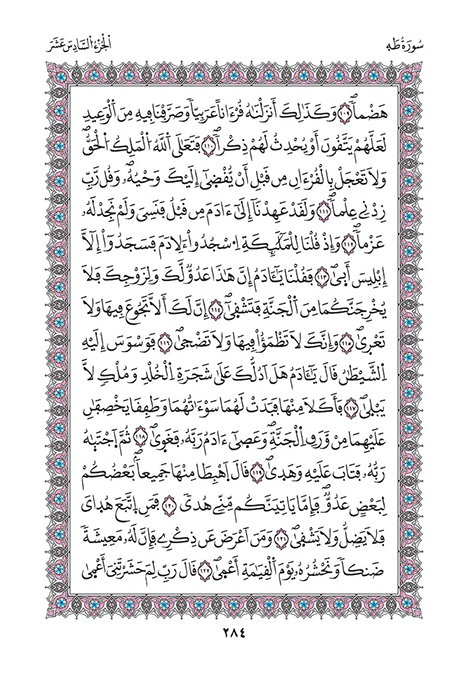 سُورَةُ طَهَ
الْجُزْءُ السَّادِسَ عَشَرَ
هَضْماً ١٠٩ وَكَذَٰلِكَ أَنزَلْنَٰهُ قُرْءَاناً عَرَبِيّاً وَصَرَّفْنَا فِيهِ مِنَ اَلْوَعِيدِ
لَعَلَّهُمْ يَتَّقُونَ أَوْ يُحْدِثُ لَهُمْ ذِكْراً ١١٠ فَتَعَٰلَى اَللَّهُ اُلْمَلِكُ اُلْحَقُّ
وَلَا تَعْجَلْ بِالْقُرْءَانِ مِن قَبْلِ أَنْ يُّقْضَىٰ إِلَيْكَ وَحْيُهُۥ وَقُل رَّبِّ
زِدْنِي عِلْماً ١١١ وَلَقَدْ عَهِدْنَا إِلَىٰ ءَادَمَ مِن قَبْلُ فَنَسِيَ وَلَمْ نَجِدْ لَهُۥ
عَزْماً ١١٢ وَإِذْ قُلْنَا لِلْمَلَٰٓئِكَةِ اِ۟سْجُدُوا۟ لِأٓدَمَ فَسَجَدُوا۟ إِلَّا
إِبْلِيسَ أَبَىٰ ١١٣ فَقُلْنَا يَٰٓـَٔادَمُ إِنَّ هَٰذَا عَدُوٌّ لَّكَ وَلِزَوْجِكَ فَلَا
يُخْرِجَنَّكُمَا مِنَ اَلْجَنَّةِ فَتَشْقَىٰ ١١٤ إِنَّ لَكَ أَلَّا تَجُوعَ فِيهَا وَلَا
تَعْرَىٰ ١١٥ وَإِنَّكَ لَا تَظْمَؤُا۟ فِيهَا وَلَا تَضْحَىٰ ١١٦ فَوَسْوَسَ إِلَيْهِ
اِ۬لشَّيْطَٰنُ قَالَ يَٰٓـَٔادَمُ هَلَ اَدُلُّكَ عَلَىٰ شَجَرَةِ اِ۬لْخُلْدِ وَمُلْكٍ لَّا
يَبْلَىٰ ١١٧ فَأَكَلَا مِنْهَا فَبَدَتْ لَهُمَا سَوْءَٰتُهُمَا وَطَفِقَا يَخْصِفَٰنِ
عَلَيْهِمَا مِنْ وَّرَقِ اِ۬لْجَنَّةِ وَعَصَىٰٓ ءَادَمُ رَبَّهُۥ فَغَوَىٰ ١١٨ ثُمَّ اَجْتَبَٰهُ
رَبُّهُۥ فَتَابَ عَلَيْهِ وَهَدَىٰ ١١٩ قَالَ اَهْبِطَا مِنْهَا جَمِيعاً بَعْضُكُمْ
لِبَعْضٍ عَدُوٌّ فَإِمَّا يَاتِيَنَّكُم مِّنِّي هُدىً ١٢٠ فَمَنِ اِ۪تَّبَعَ هُدَايَ
فَلَا يَضِلُّ وَلَا يَشْقَىٰ ١٢١ وَمَنَ اَعْرَضَ عَن ذِكْرِي فَإِنَّ لَهُۥ مَعِيشَةً
ضَنكاً وَنَحْشُرُهُۥ يَوْمَ اَ۬لْقِيَٰمَةِ أَعْمَىٰ ١٢٢ قَالَ رَبِّ لِمَ حَشَرْتَنِيَ أَعْمَىٰ
٢٨٤